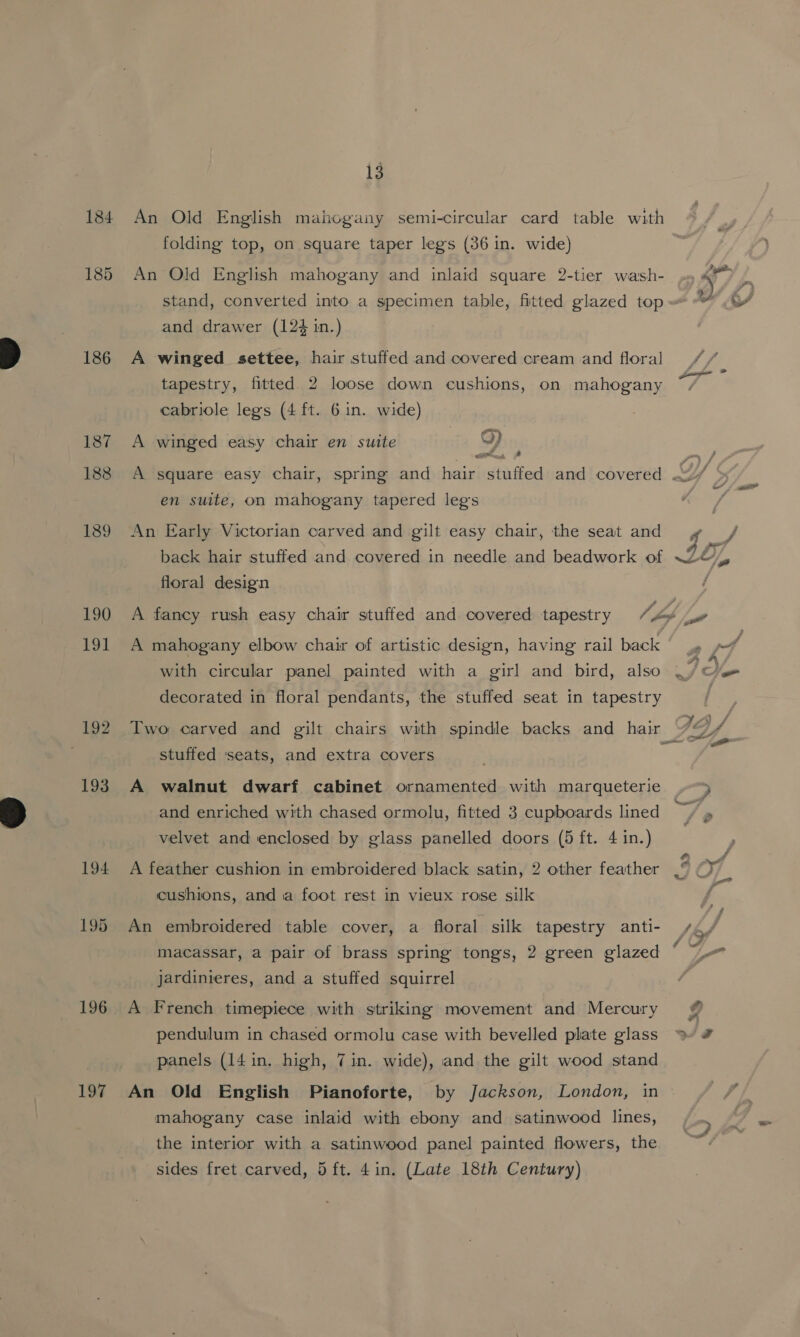 13
184 An Old English mahogany semi-circular card table with
folding top, on square taper legs (36 in. wide)
185 An Old English mahogany and inlaid square 2-tier wash-
stand, converted into a specimen table, fitted glazed top
and drawer (12½ in.)
186 A winged settee, hair stuffed and covered cream and floral
tapestry, fitted 2 loose down cushions, on mahogany
cabriole legs (4 ft. 6 in. wide)
187 A winged easy chair en suite
188 A square easy chair, spring and hair stuffed and covered
en suite, on mahogany tapered legs
189 An Early Victorian carved and gilt easy chair, the seat and
back hair stuffed and covered in needle and beadwork of
floral design
190 A fancy rush easy chair stuffed and covered tapestry
191 A mahogany elbow chair of artistic design, having rail back
with circular panel painted with a girl and bird, also
decorated in floral pendants, the stuffed seat in tapestry
192 Two carved and gilt chairs with spindle backs and hair
stuffed seats, and extra covers
193 A walnut dwarf cabinet ornamented with marqueterie
and enriched with chased ormolu, fitted 3 cupboards lined
velvet and enclosed by glass panelled doors (5 ft. 4 in.)
194 A feather cushion in embroidered black satin, 2 other feather
cushions, and a foot rest in vieux rose silk
195 An embroidered table cover, a floral silk tapestry anti-
macassar, a pair of brass spring tongs, 2 green glazed
jardinieres, and a stuffed squirrel
196 A French timepiece with striking movement and Mercury
pendulum in chased ormolu case with bevelled plate glass
panels (14 in. high, 7 in. wide), and the gilt wood stand
197 An Old English Pianoforte, by Jackson, London, in
mahogany case inlaid with ebony and satinwood lines,
the interior with a satinwood panel painted flowers, the
sides fret carved, 5 ft. 4 in. (Late 18th Century)